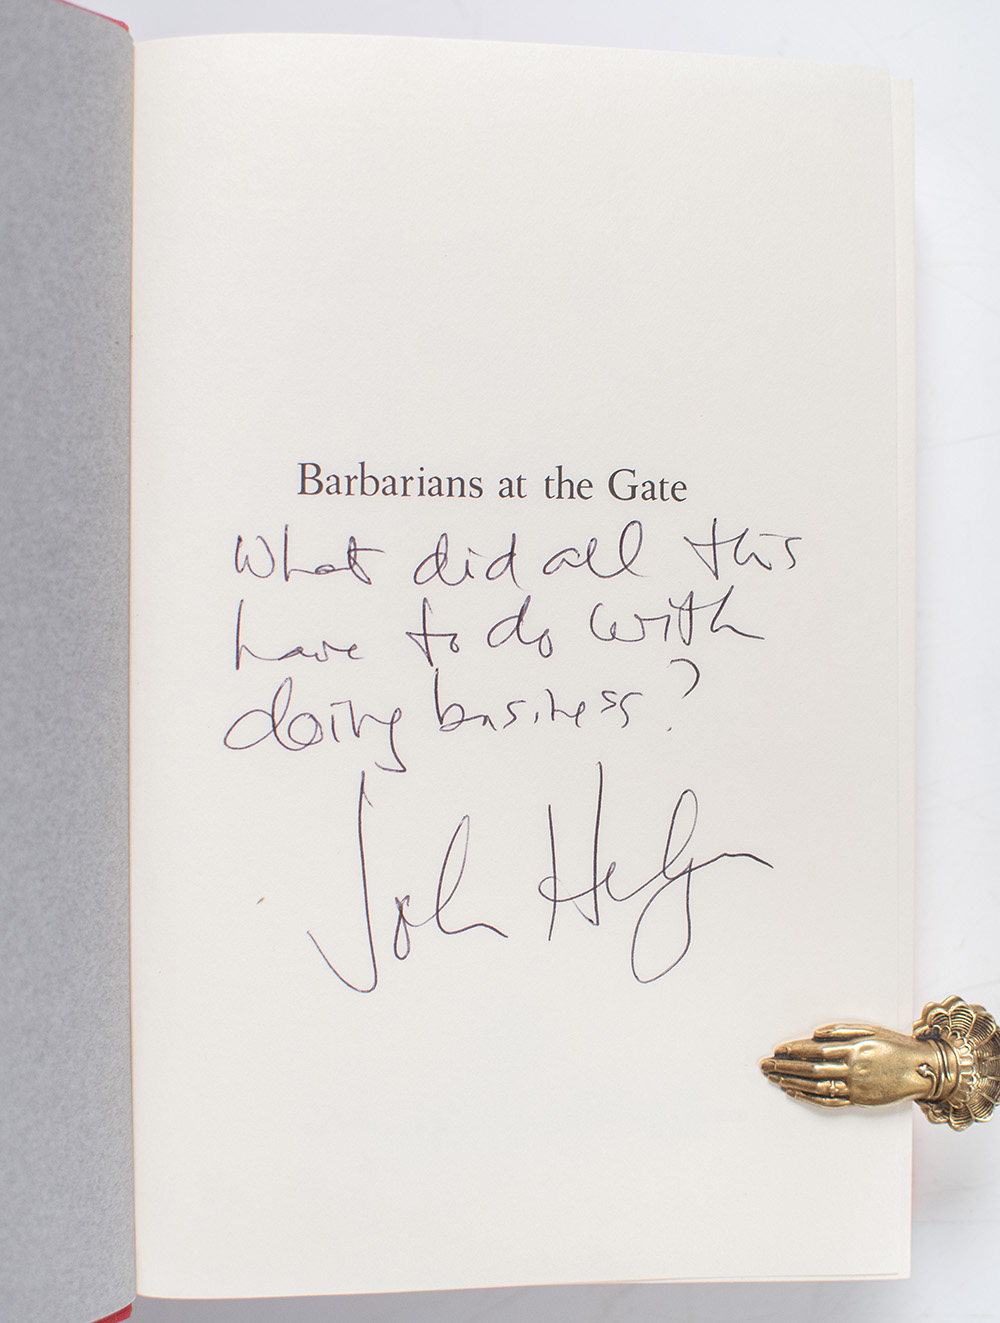 Barbarians at the Gate
What did all this
have to do with
doing business?
John Helyar